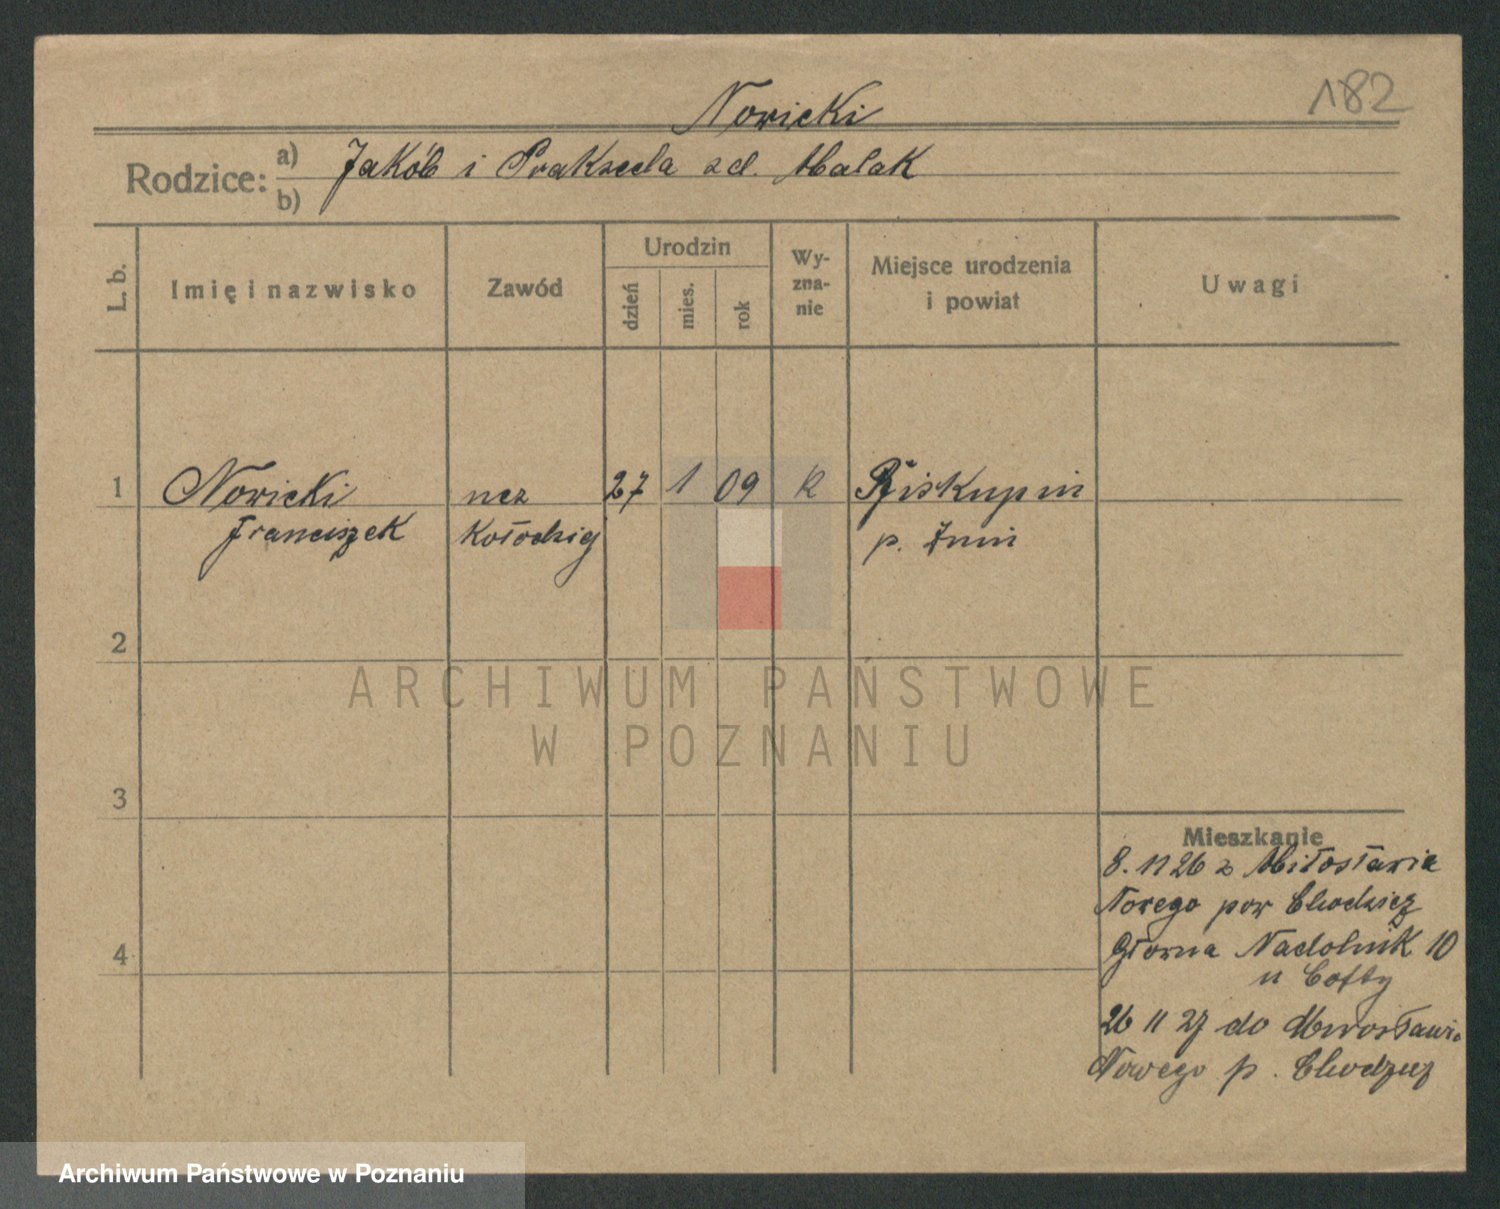 182
Nowicki
Rodzice: a) b) Jakób i Prakseda zd. Malak
L. b.
Imię i nazwisko
Zawód
Urodzin
dzień
mies.
rok
Wy-
zna-
nie
Miejsce urodzenia
i powiat
Uwagi
1 Nowicki ucz 27 1 09 R Biskupin
Franciszek kołodziej p. Żnin
2
3
4
Mieszkanie
8. 11 26 z Miłosławia
Nowego pow Chodzież
Główna Nadolnik 10
u
26 11 27 do
Nowego p. Chodzież
ARCHIWUM PAŃSTWOWE
W POZNANIU
Archiwum Państwowe w Poznaniu